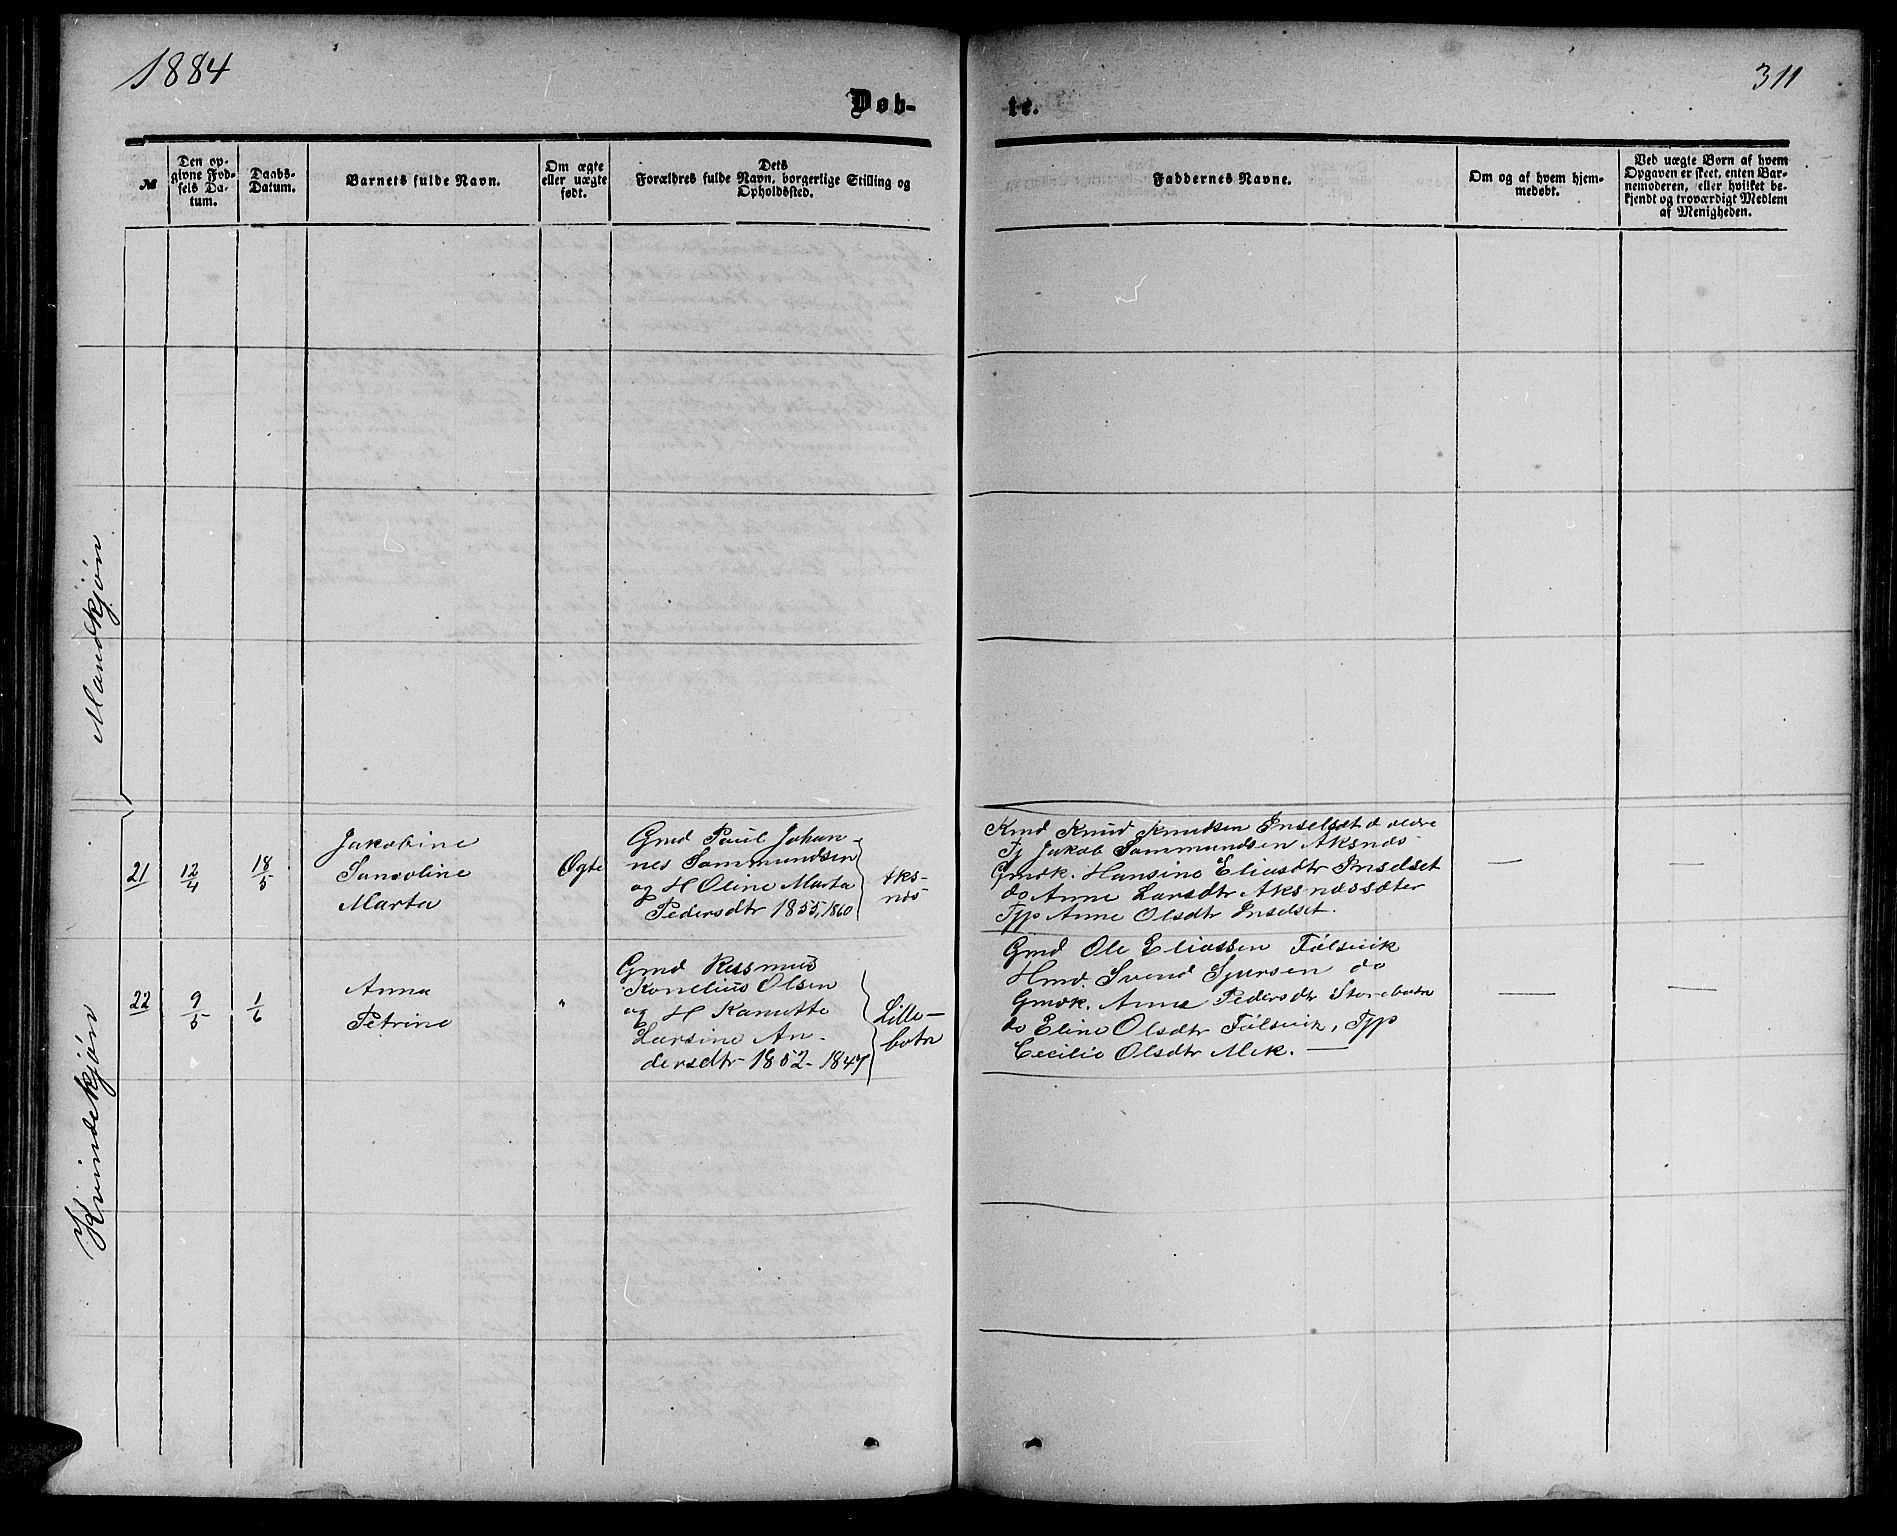 1884
311
Døb-
te.
№
Den op-
givne Fød-
sels Da-
tum.
Daabs-
Datum.
Barnets fulde Navn.
Om ægte
eller uægte
født.
Dets
Forældres fulde Navn, borgerlige Stilling og
Opholdssted.
Faddernes Navne.
Om og af hvem hjem-
medøbt.
Ved uægte Børn af hvem
Opgaven er skeet, enten Bar-
nemoderen, eller hvilket be-
kjendt og troværdigt Medlem
af Menigheden.
Mandkjøn
Kvindekjøn
21
12/4
18/5
Jakobine
Marta
Ægte
Gmd Paul Johan-
nes Sammundsen
og H Oline Marta
Pedersdtr 1855, 1860
Aks-
næs
Kmd Knud Knudsen Inselset d ældre
Jakob Sammundsen Aksnæs
Gmdk. Hansine Eliasdtr Inselset
do Anne Larsdtr Aksnæssæter
Tjp Anne Olsdtr Inselset.
—
—
22
9/5
1/6
Anna
Petrine
"
Gmd Rasmus
Kornelius Olsen
og H Kanutte
Larsine An-
dersdtr 1852- 1847
Lille-
botn
Gmd Ole Eliassen Følsvik
Hmd. Svend Sjursen do
Gmdk. Anne Pedersdtr Storebotn
do Eline Olsdtr Følsvik, Tjp
Cecilie Olsdtr Mek. —
—
—